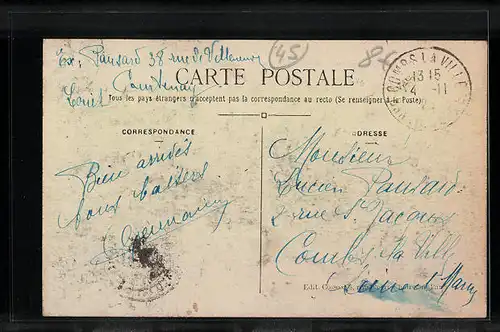 Ex: Pansard 38 rue de Villeneuve
(45)
86
Courtenay
Loiret
CARTE POSTALE
Tous les pays étrangers n'acceptent pas la correspondance au recto (Se renseigner à la Poste)
COMBS-LA-VILLE
13 15
4 - 11
CORRESPONDANCE
Bien arrivés
bons baisers
Germaine
ADRESSE
Monsieur
Lucien Pansard
2 rue St Jacques
Combs la Ville
Seine et Marne
Edit.